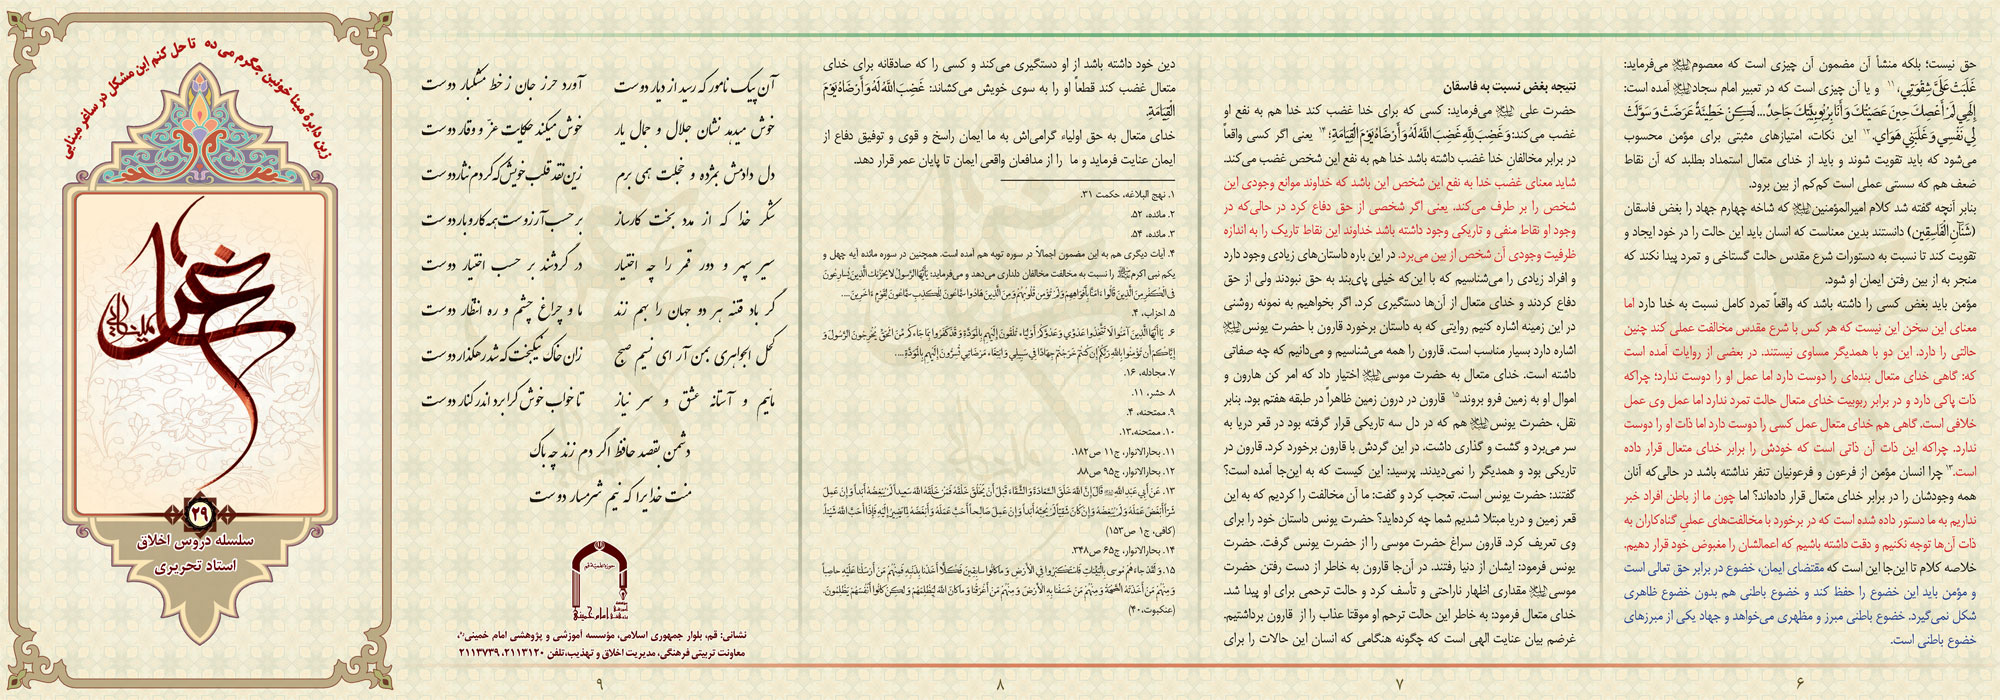 حق نیست؛ بلکه منشأ آن مضمون آن چیزی است که معصوم می‌فرماید:
غَلَبَتْ عَلَيَّ شِقْوَتِي، ۱۱ و یا آن چیزی است که در تعبیر امام سجاد آمده است:
إِلَهِي لَمْ أَعْصِكَ حِينَ عَصَيْتُكَ وَ أَنَا بِرُبُوبِيَّتِكَ جَاحِدٌ... لَكِنْ خَطِيئَةٌ عَرَضَتْ وَ سَوَّلَتْ
لِي نَفْسِي وَ غَلَبَنِي هَوَايَ. ۱۲ این نکات، امتیازهای مثبتی برای مؤمن محسوب
می‌شود که باید تقویت شوند و باید از خدای متعال استمداد بطلبد که آن نقاط
ضعف هم که سستی عملی است کم‌کم از بین برود.
بنابر آنچه گفته شد کلام امیرالمؤمنین که شاخه چهارم جهاد را بغض فاسقان
(شَنَآنِ الْفَاسِقِينَ) دانستند بدین معناست که انسان باید این حالت را در خود ایجاد و
تقویت کند تا نسبت به دستورات شرع مقدس حالت گستاخی و تمرد پیدا نکند که
منجر به از بین رفتن ایمان او شود.
مؤمن باید بغض کسی را داشته باشد که واقعاً تمرد کامل نسبت به خدا دارد اما
معنای این سخن این نیست که هر کس با شرع مقدس مخالفت عملی کند چنین
حالتی را دارد. این دو با همدیگر مساوی نیستند. در بعضی از روایات آمده است
که: گاهی خدای متعال بنده‌ای را دوست دارد اما عمل او را دوست ندارد؛ چراکه
ذات پاکی دارد و در برابر ربوبیت خدای متعال حالت تمرد ندارد اما عمل وی عمل
خلافی است. گاهی هم خدای متعال عمل کسی را دوست دارد اما ذات او را دوست
ندارد. چراکه این ذات آن ذاتی است که خودش را برابر خدای متعال قرار داده
است. ۱۳ چرا انسان مؤمن از فرعون و فرعونیان تنفر نداشته باشد در حالی‌که آنان
همه وجودشان را در برابر خدای متعال قرار داده‌اند؟ اما چون ما از باطن افراد خبر
نداریم به ما دستور داده شده است که در برخورد با مخالفت‌های عملی گناه‌کاران به
ذات آن‌ها توجه نکنیم و دقت داشته باشیم که اعمالشان را مبغوض خود قرار دهیم.
خلاصه کلام تا این‌جا این است که مقتضای ایمان، خضوع در برابر حق تعالی است
و مؤمن باید این خضوع را حفظ کند و خضوع باطنی هم بدون خضوع ظاهری
شکل نمی‌گیرد. خضوع باطنی مبرز و مظهری می‌خواهد و جهاد یکی از مبرزهای
خضوع باطنی است.
۶
نتیجه بغض نسبت به فاسقان
حضرت علی می‌فرماید: کسی که برای خدا غضب کند خدا هم به نفع او
غضب می‌کند: وَ غَضِبَ لِلَّهِ غَضِبَ اللَّهُ لَهُ وَ أَرْضَاهُ يَوْمَ الْقِيَامَةِ؛ ۱۴ یعنی اگر کسی واقعاً
در برابر مخالفان خدا غضب داشته باشد خدا هم به نفع این شخص غضب می‌کند.
شاید معنای غضب خدا به نفع این شخص این باشد که خداوند موانع وجودی این
شخص را بر طرف می‌کند. یعنی اگر شخصی از حق دفاع کرد در حالی‌که در
وجود او نقاط منفی و تاریکی وجود داشته باشد خداوند این نقاط تاریک را به اندازه
ظرفیت وجودی آن شخص از بین می‌برد. در این باره داستان‌های زیادی وجود دارد
و افراد زیادی را می‌شناسیم که با این‌که خیلی پای‌بند به حق نبودند ولی از حق
دفاع کردند و خدای متعال از آن‌ها دستگیری کرد. اگر بخواهیم به نمونه روشنی
در این زمینه اشاره کنیم روایتی که به داستان برخورد قارون با حضرت یونس
اشاره دارد بسیار مناسب است. قارون را همه می‌شناسیم و می‌دانیم که چه صفاتی
داشته است. خدای متعال به حضرت موسی اختیار داد که امر کن هارون و
اموال او به زمین فرو بروند. ۱۵ قارون در درون زمین ظاهراً در طبقه هفتم بود. بنابر
نقل، حضرت یونس هم که در دل سه تاریکی قرار گرفته بود در قعر دریا به
سر می‌برد و گشت و گذاری داشت. در این گردش با قارون برخورد کرد. قارون در
تاریکی بود و همدیگر را نمی‌دیدند. پرسید: این کیست که به این‌جا آمده است؟
گفتند: حضرت یونس است. تعجب کرد و گفت: ما آن مخالفت را کردیم که به این
قعر زمین و دریا مبتلا شدیم شما چه کرده‌اید؟ حضرت یونس داستان خود را برای
وی تعریف کرد. قارون سراغ حضرت موسی را از حضرت یونس گرفت. حضرت
یونس فرمود: ایشان از دنیا رفتند. در آن‌جا قارون به خاطر از دست رفتن حضرت
موسی مقداری اظهار ناراحتی و تأسف کرد و حالت ترحمی برای او پیدا شد.
خدای متعال فرمود: به خاطر این حالت ترحم او موقتا عذاب را از قارون برداشتیم.
غرضم بیان عنایت الهی است که چگونه هنگامی که انسان این حالات را برای
۷
دین خود داشته باشد از او دستگیری می‌کند و کسی را که صادقانه برای خدای
متعال غضب کند قطعاً او را به سوی خویش می‌کشاند: غَضِبَ اللَّهُ لَهُ وَ أَرْضَاهُ يَوْمَ
الْقِيَامَةِ.
خدای متعال به حق اولیاء گرامی‌اش به ما ایمان راسخ و قوی و توفیق دفاع از
ایمان عنایت فرماید و ما را از مدافعان واقعی ایمان تا پایان عمر قرار دهد.
۱. نهج البلاغه، حکمت ۳۱.
۲. مائده، ۵۲.
۳. مائده، ۵۴.
۴. آیات دیگری هم به این مضمون اجمالاً در سوره توبه هم آمده است. همچنین در سوره مائده آیه چهل و
یکم نبی اکرم را نسبت به مخالفت مخالفان دلداری می‌دهد و می‌فرماید: يَا أَيُّهَا الرَّسُولُ لاَ يَحْزُنكَ الَّذِينَ يُسَارِعُونَ
فِي الْكُفْرِ مِنَ الَّذِينَ قَالُواْ آمَنَّا بِأَفْوَاهِهِمْ وَلَمْ تُؤْمِن قُلُوبُهُمْ وَمِنَ الَّذِينَ هَادُواْ سَمَّاعُونَ لِلْكَذِبِ سَمَّاعُونَ لِقَوْمٍ آخَرِينَ...
۵. احزاب، ۴.
۶. يَا أَيُّهَا الَّذِينَ آمَنُوا لَا تَتَّخِذُوا عَدُوِّي وَعَدُوَّكُمْ أَوْلِيَاء تُلْقُونَ إِلَيْهِم بِالْمَوَدَّةِ وَقَدْ كَفَرُوا بِمَا جَاءكُم مِّنَ الْحَقِّ يُخْرِجُونَ الرَّسُولَ وَ
إِيَّاكُمْ أَن تُؤْمِنُوا بِاللَّهِ رَبِّكُمْ إِن كُنتُمْ خَرَجْتُمْ جِهَادًا فِي سَبِيلِي وَابْتِغَاء مَرْضَاتِي تُسِرُّونَ إِلَيْهِم بِالْمَوَدَّةِ...
۷. مجادله، ۱۶.
۸. حشر، ۱۱.
۹. ممتحنه، ۴.
۱۰. ممتحنه، ۱۳.
۱۱. بحارالانوار، ج۱۱ ص۱۸۲.
۱۲. بحارالانوار، ج۹۵ ص۸۸
۱۳. عَنْ أَبِي عَبْدِ اللَّهِ قَالَ إِنَّ اللَّهَ خَلَقَ السَّعَادَةَ وَ الشَّقَاءَ قَبْلَ أَنْ يَخْلُقَ خَلْقَهُ فَمَنْ خَلَقَهُ اللَّهُ سَعِيداً لَمْ يُبْغِضْهُ أَبَداً وَ إِنْ عَمِلَ
شَرّاً أَبْغَضَ عَمَلَهُ وَ لَمْ يُبْغِضْهُ وَ إِنْ كَانَ شَقِيّاً لَمْ يُحِبَّهُ أَبَداً وَ إِنْ عَمِلَ صَالِحاً أَحَبَّ عَمَلَهُ وَ أَبْغَضَهُ لِمَا يَصِيرُ إِلَيْهِ فَإِذَا أَحَبَّ اللَّهُ شَيْئاً.
(کافی، ج۱ ص۱۵۳)
۱۴. بحارالانوار، ج۶۵ ص۳۴۸.
۱۵. وَ لَقَدْ جَاءهُم مُّوسَى بِالْبَيِّنَاتِ فَاسْتَكْبَرُوا فِي الْأَرْضِ وَ مَا كَانُوا سَابِقِينَ فَكُلًّا أَخَذْنَا بِذَنبِهِ فَمِنْهُم مَّنْ أَرْسَلْنَا عَلَيْهِ حَاصِباً
وَ مِنْهُم مَّنْ أَخَذَتْهُ الصَّيْحَةُ وَ مِنْهُم مَّنْ خَسَفْنَا بِهِ الْأَرْضَ وَ مِنْهُم مَّنْ أَغْرَقْنَا وَ مَا كَانَ اللَّهُ لِيَظْلِمَهُمْ وَ لَكِن كَانُوا أَنفُسَهُمْ يَظْلِمُونَ.
(عنکبوت، ۴۰)
۸
آن پیک نامور که رسید از دیار دوست آورد حرز جان ز خط مشکبار دوست
خوش میدهد نشان جلال و جمال یار خوش میکند حکایت عز و وقار دوست
دل دادمش بمژده و خجلت همی برم زین نقد قلب خویش که کردم نثار دوست
شکر خدا که از مدد بخت کارساز بر حسب آرزوست همه کار و بار دوست
سیر سپهر و دور قمر را چه اختیار در گردشند بر حسب اختیار دوست
گر باد فتنه هر دو جهان را بهم زند ما و چراغ چشم و ره انتظار دوست
کحل الجواهری بمن آر ای نسیم صبح زان خاک نیکبخت که شد رهگذار دوست
مائیم و آستانه عشق و سر نیاز تا خواب خوش کرا برد اندر کنار دوست
دشمن بقصد حافظ اگر دم زند چه باک
منت خدایرا که نیم شرمسار دوست
امام خمینی
نشانی: قم، بلوار جمهوری اسلامی، مؤسسه آموزشی و پژوهشی امام خمینی
معاونت تربیتی فرهنگی، مدیریت اخلاق و تهذیب، تلفن ۲۱۱۳۱۲۰، ۲۱۱۳۷۳۹
۹
زین دایرهٔ مینا خونین جگرم می ده تا حل کنم این مشکل در ساغر مینایی
۲۹
سلسله دروس اخلاق
استاد تحریری